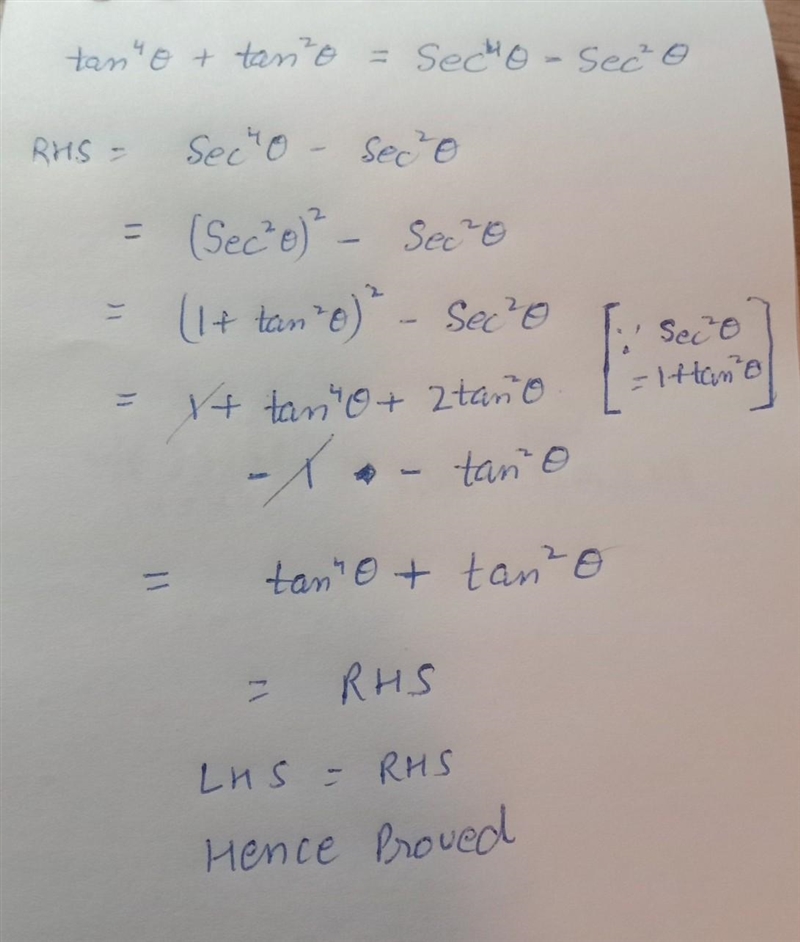 tan⁴θ + tan²θ = Sec⁴θ - Sec²θ
RHS = Sec⁴θ - Sec²θ
= (Sec²θ)² - Sec²θ
= (1 + tan²θ)² - Sec²θ [∵ Sec²θ
= 1 + tan⁴θ + 2tan²θ = 1+tan²θ]
- 1 - tan²θ
= tan⁴θ + tan²θ
= RHS
LHS = RHS
Hence Proved